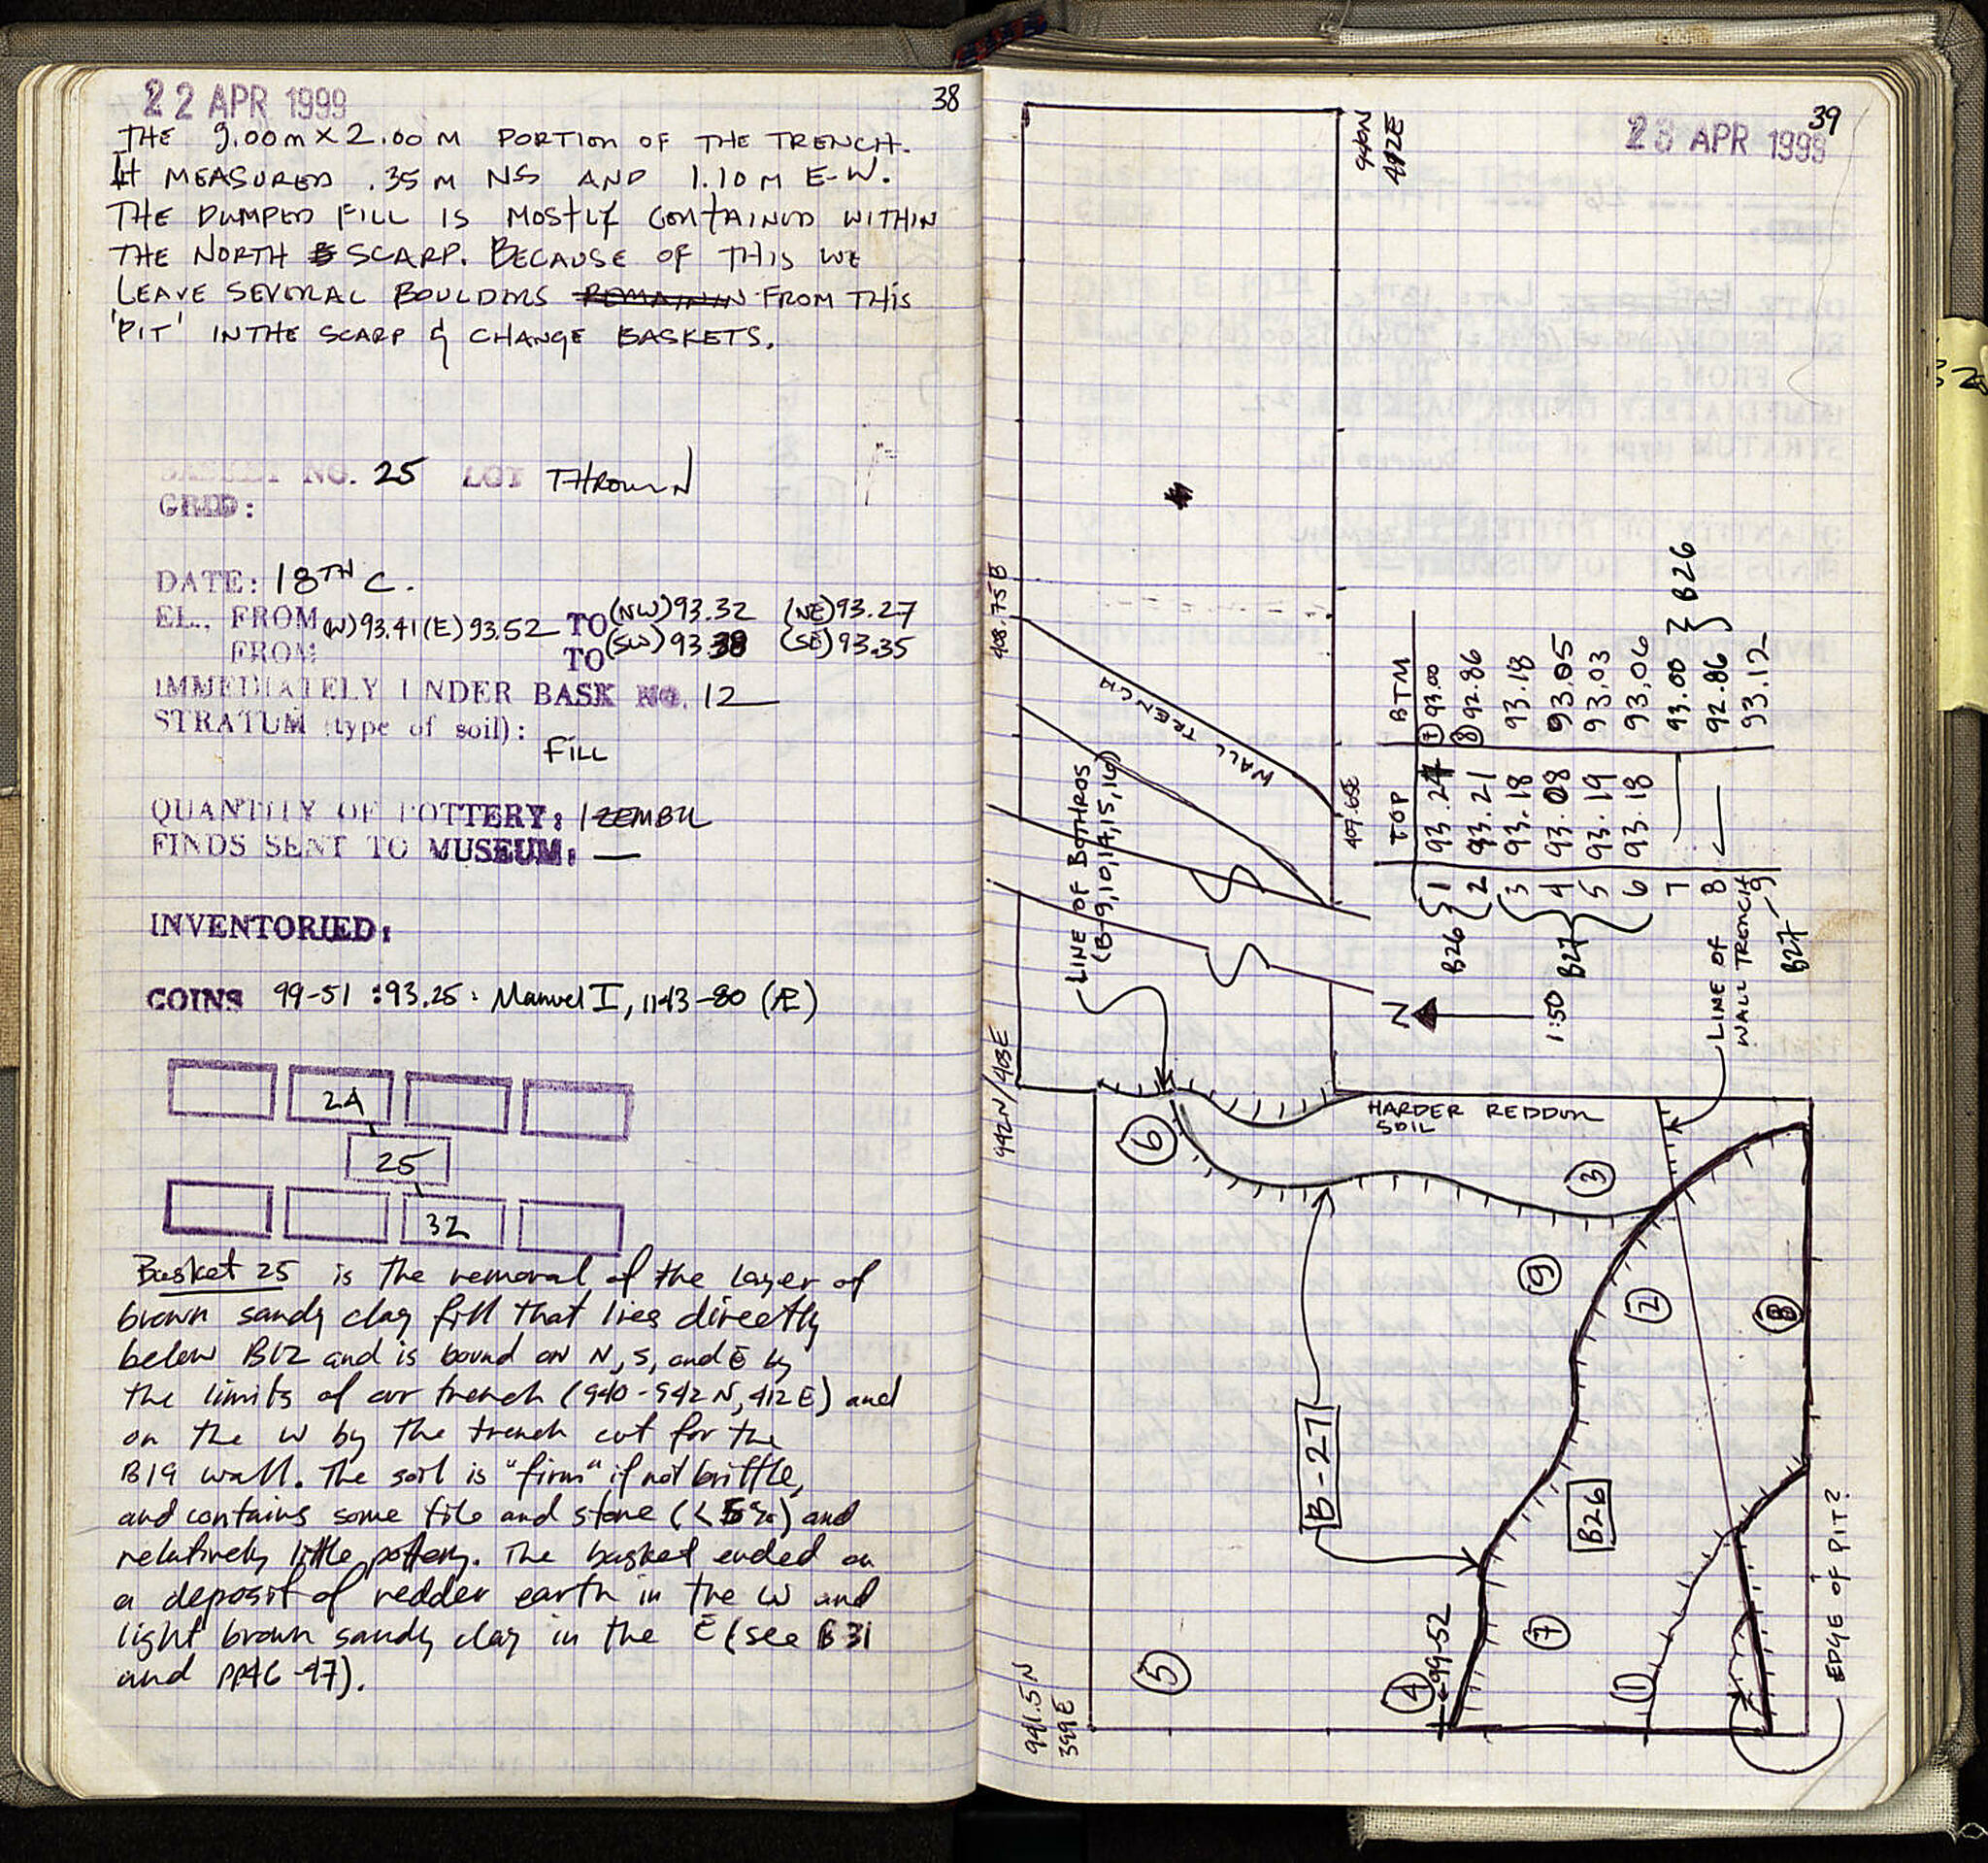 22 APR 1999
38
THE 9.00m X 2.00 M PORTION OF THE TRENCH.
It MEASURED .35 M NS AND 1.10 M E-W.
THE DUMPED FILL IS MOSTLY CONTAINED WITHIN
THE NORTH SCARP. BECAUSE OF THIS WE
LEAVE SEVERAL BOULDERS FROM THIS
'PIT' IN THE SCARP & CHANGE BASKETS.
BASKET NO. 25 LOT THROWN
GRID:
DATE: 18TH C.
EL., FROM (W)93.41 (E)93.52 TO (NW)93.32 (NE)93.27
FROM TO (SW)93.38 (SE)93.35
IMMEDIATELY UNDER BASK NO. 12
STRATUM (type of soil):
FILL
QUANTITY OF POTTERY: 1 ZEMBIL
FINDS SENT TO MUSEUM: —
INVENTORIED:
COINS 99-51 : 93.25 : Manuel I, 1143-80 (Æ)
24
25
32
Basket 25 is the removal of the layer of
brown sandy clay fill that lies directly
below B12 and is bound on N, S, and E by
the limits of our trench (940-942 N, 412 E) and
on the W by the trench cut for the
B19 wall. The soil is "firm" if not brittle,
and contains some tile and stone (<5%) and
relatively little pottery. The basket ended on
a deposit of redder earth in the W and
light brown sandy clay in the E (see B31
and pp 46-47).
39
23 APR 1999
940N
412E
408.75E
WALL TRENCH
407.65E
LINE OF BOTHROS
(B-9,10,14,15,16)
942N/403E
TOP BTM
B26 { 1 93.24 (7) 93.00
2 93.21 (8) 92.86
B27 { 3 93.18 93.18
4 93.08 93.05
5 93.19 93.03
6 93.18 93.06
7 — 93.00 } B26
8 — 92.86
B27 9 93.12
N
1:50
LINE OF
WALL TRENCH
HARDER REDDISH
SOIL
6
3
9
2
8
B-27
B26
7
1
5
4
99-52
EDGE OF PIT?
941.5N
399E